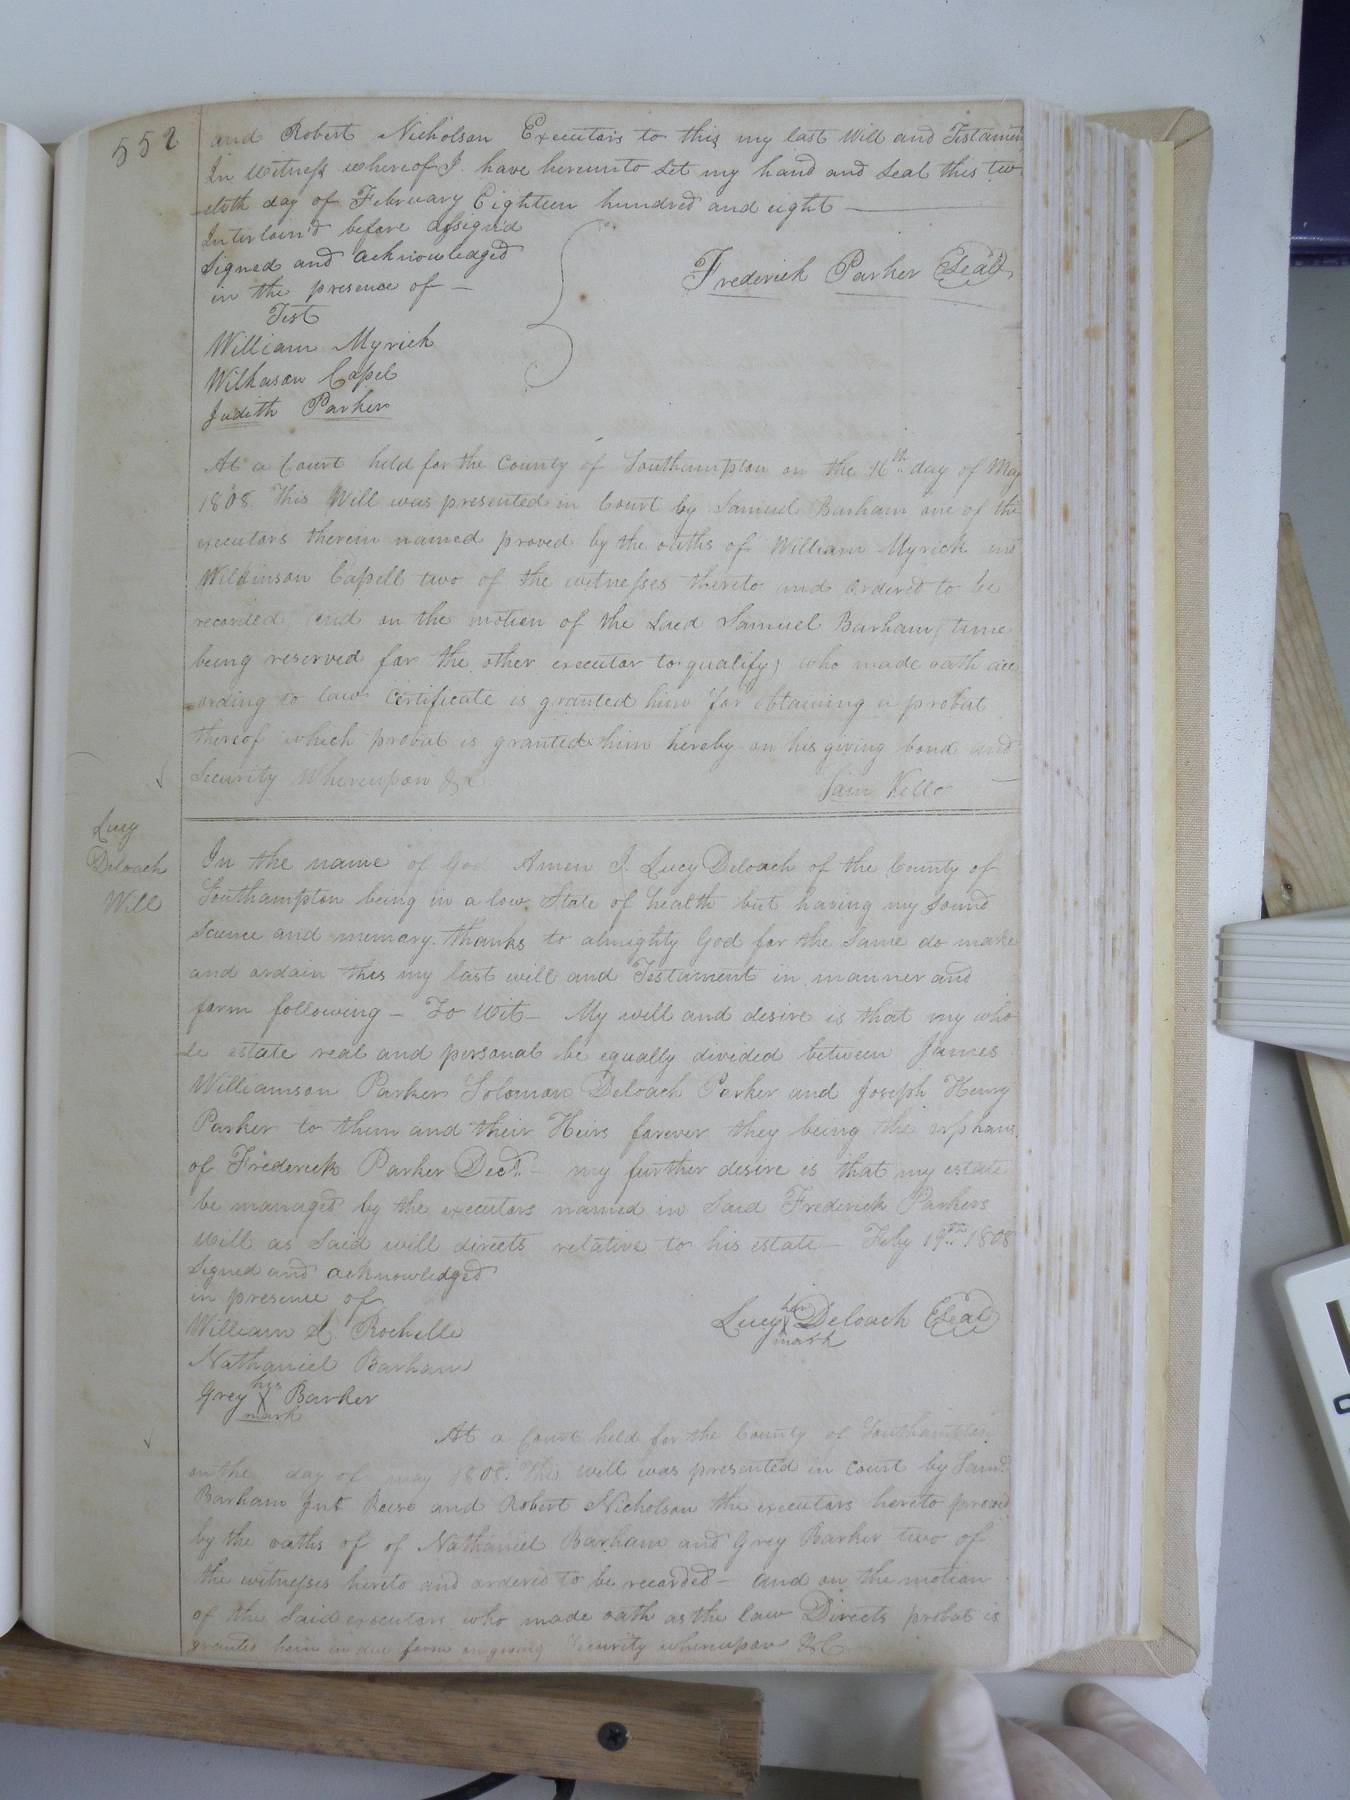 552
and Robert Nicholson Executors to this my last Will and Testament
In Witness whereof I have hereunto Set my hand and Seal this tw
elvth day of February Eighteen hundred and eight
Interloin'd before assign'd
Signed and acknowledged
in the presence of
Test
Frederick Parker Seal
William Myrick
Wilkason Capel
Judith Parker
At a Court held for the County of Southampton on the 16th day of May
1808 This Will was presented in Court by Samuel Barham one of the
executors therein named proved by the oaths of William Myrick and
Wilkinson Capell two of the witnesses thereto and ordered to be
recorded and on the motion of the Said Samuel Barham (time
being reserved for the other executor to qualify) who made oath acc
ording to law certificate is granted him for obtaining a probat
thereof which probat is granted him hereby on his giving bond and
Security Whereupon &c
Sam Kello
Lucy
Deloach
Will
In the name of God Amen I Lucy Deloach of the County of
Southampton being in a low State of health but having my Sound
Science and memory thanks to almighty God for the Same do make
and ordain this my last will and Testament in manner and
form following - To Wit - My will and desire is that my who
le estate real and personal be equally divided between James
Williamson Parker Solomon Deloach Parker and Joseph Henry
Parker to them and their Heirs forever they being the orphans
of Frederick Parker Decd. - my further desire is that my estate
be managed by the executors named in Said Frederick Parkers
Will as Said will directs relative to his estate - Feby 19th 1808
Signed and acknowledged
in presence of
Lucy her X mark Deloach Seal
William L. Rochelle
Nathaniel Barham
Grey his X mark Barker
At a Court held for the County of Southampton
on the day of may 1808. This will was presented in Court by Saml.
Barham and Robert Nicholson the executors hereto proved
by the oaths of of Nathaniel Barham and Grey Barker two of
the witnesses hereto and ordered to be recorded - and on the motion
of the Said executors who made oath as the law Directs probat is
granted him in due form on giving Security whereupon &C